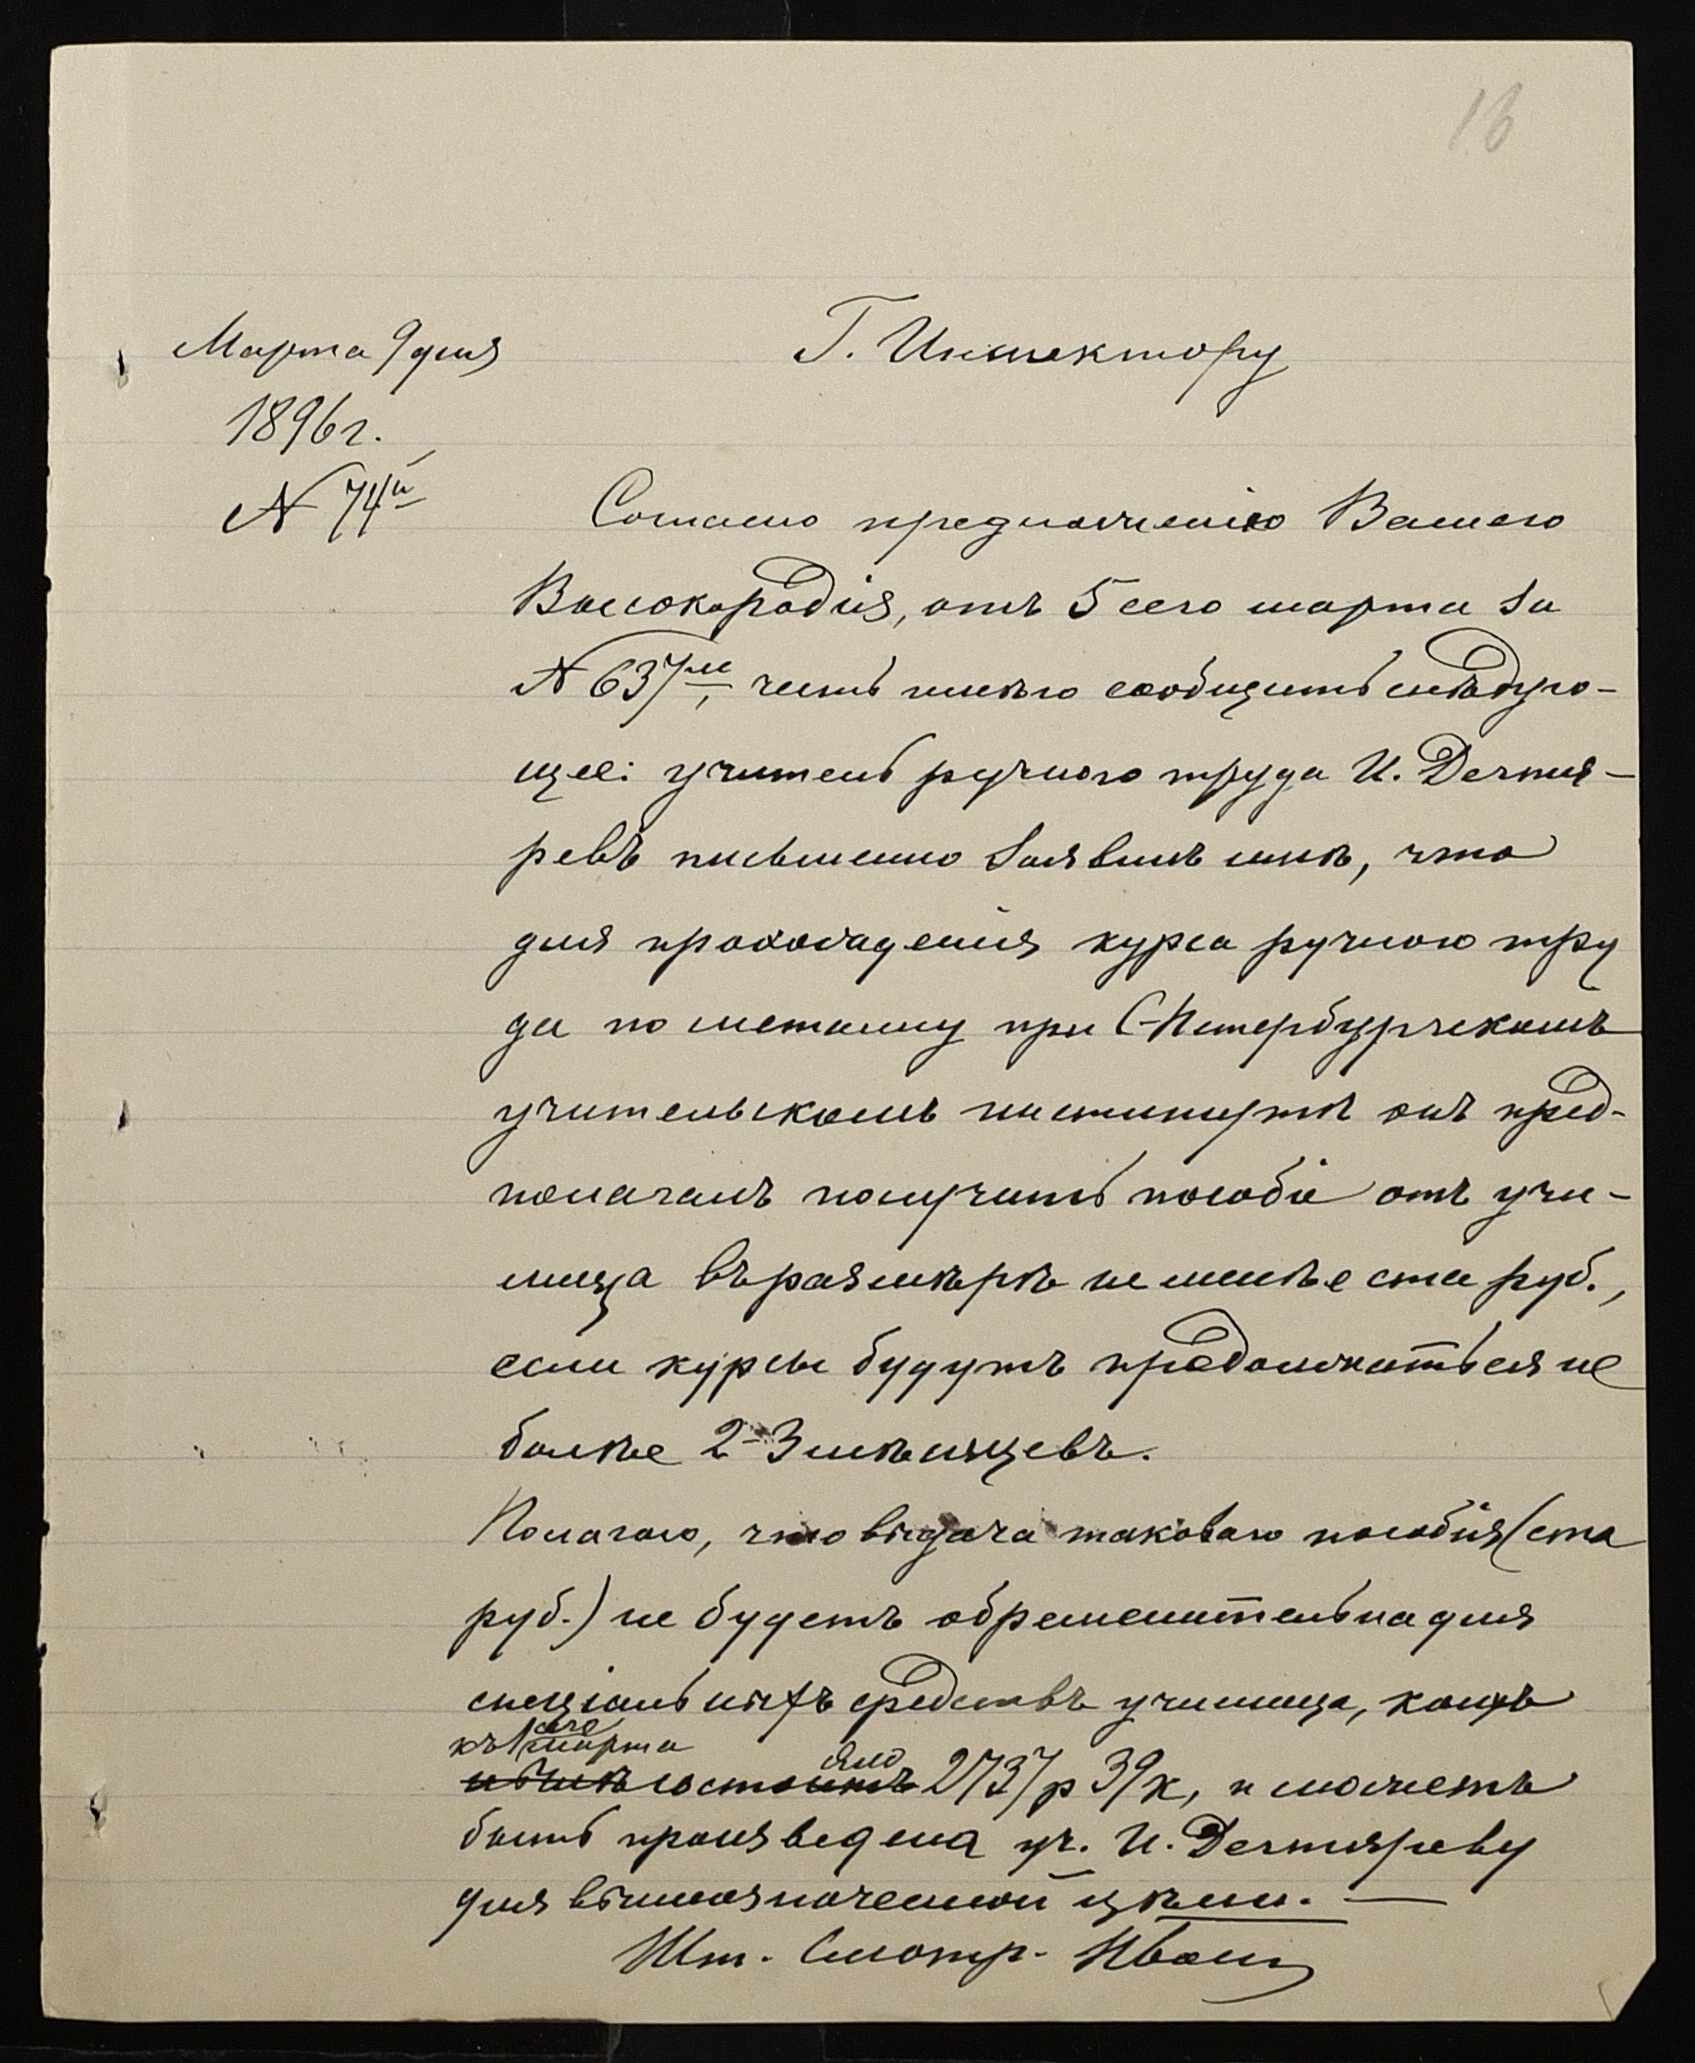 16
Марта 9 дня
1896 г.
№ 74й
Г. Инспектору
Согласно предложенію Вашего
Высокородія, отъ 5 сего марта за
№ 637мъ, честь имѣю сообщить слѣдую-
щее: учитель ручного труда И. Дегтя-
ревъ письменно заявилъ мнѣ, что
для прохожденія курса ручного тру
да по металлу при С-Петербургскомъ
учительскомъ институтѣ онъ пред-
полагалъ получить пособіе отъ учи-
лища въ размѣрѣ не менѣе ста руб.,
если курсы будутъ продолжаться не
болѣе 2-3 мѣсяцевъ.
Полагаю, что выдача таковаго пособія (ста
руб.) не будетъ обременительна для
спеціальныхъ средствъ училища, коихъ
къ 1 сего марта
состояло 2737 р 39 к, и можетъ
быть произведена уч. И. Дегтяреву
для вышеозначенной цѣли. —
Шт. Смотр. Иван